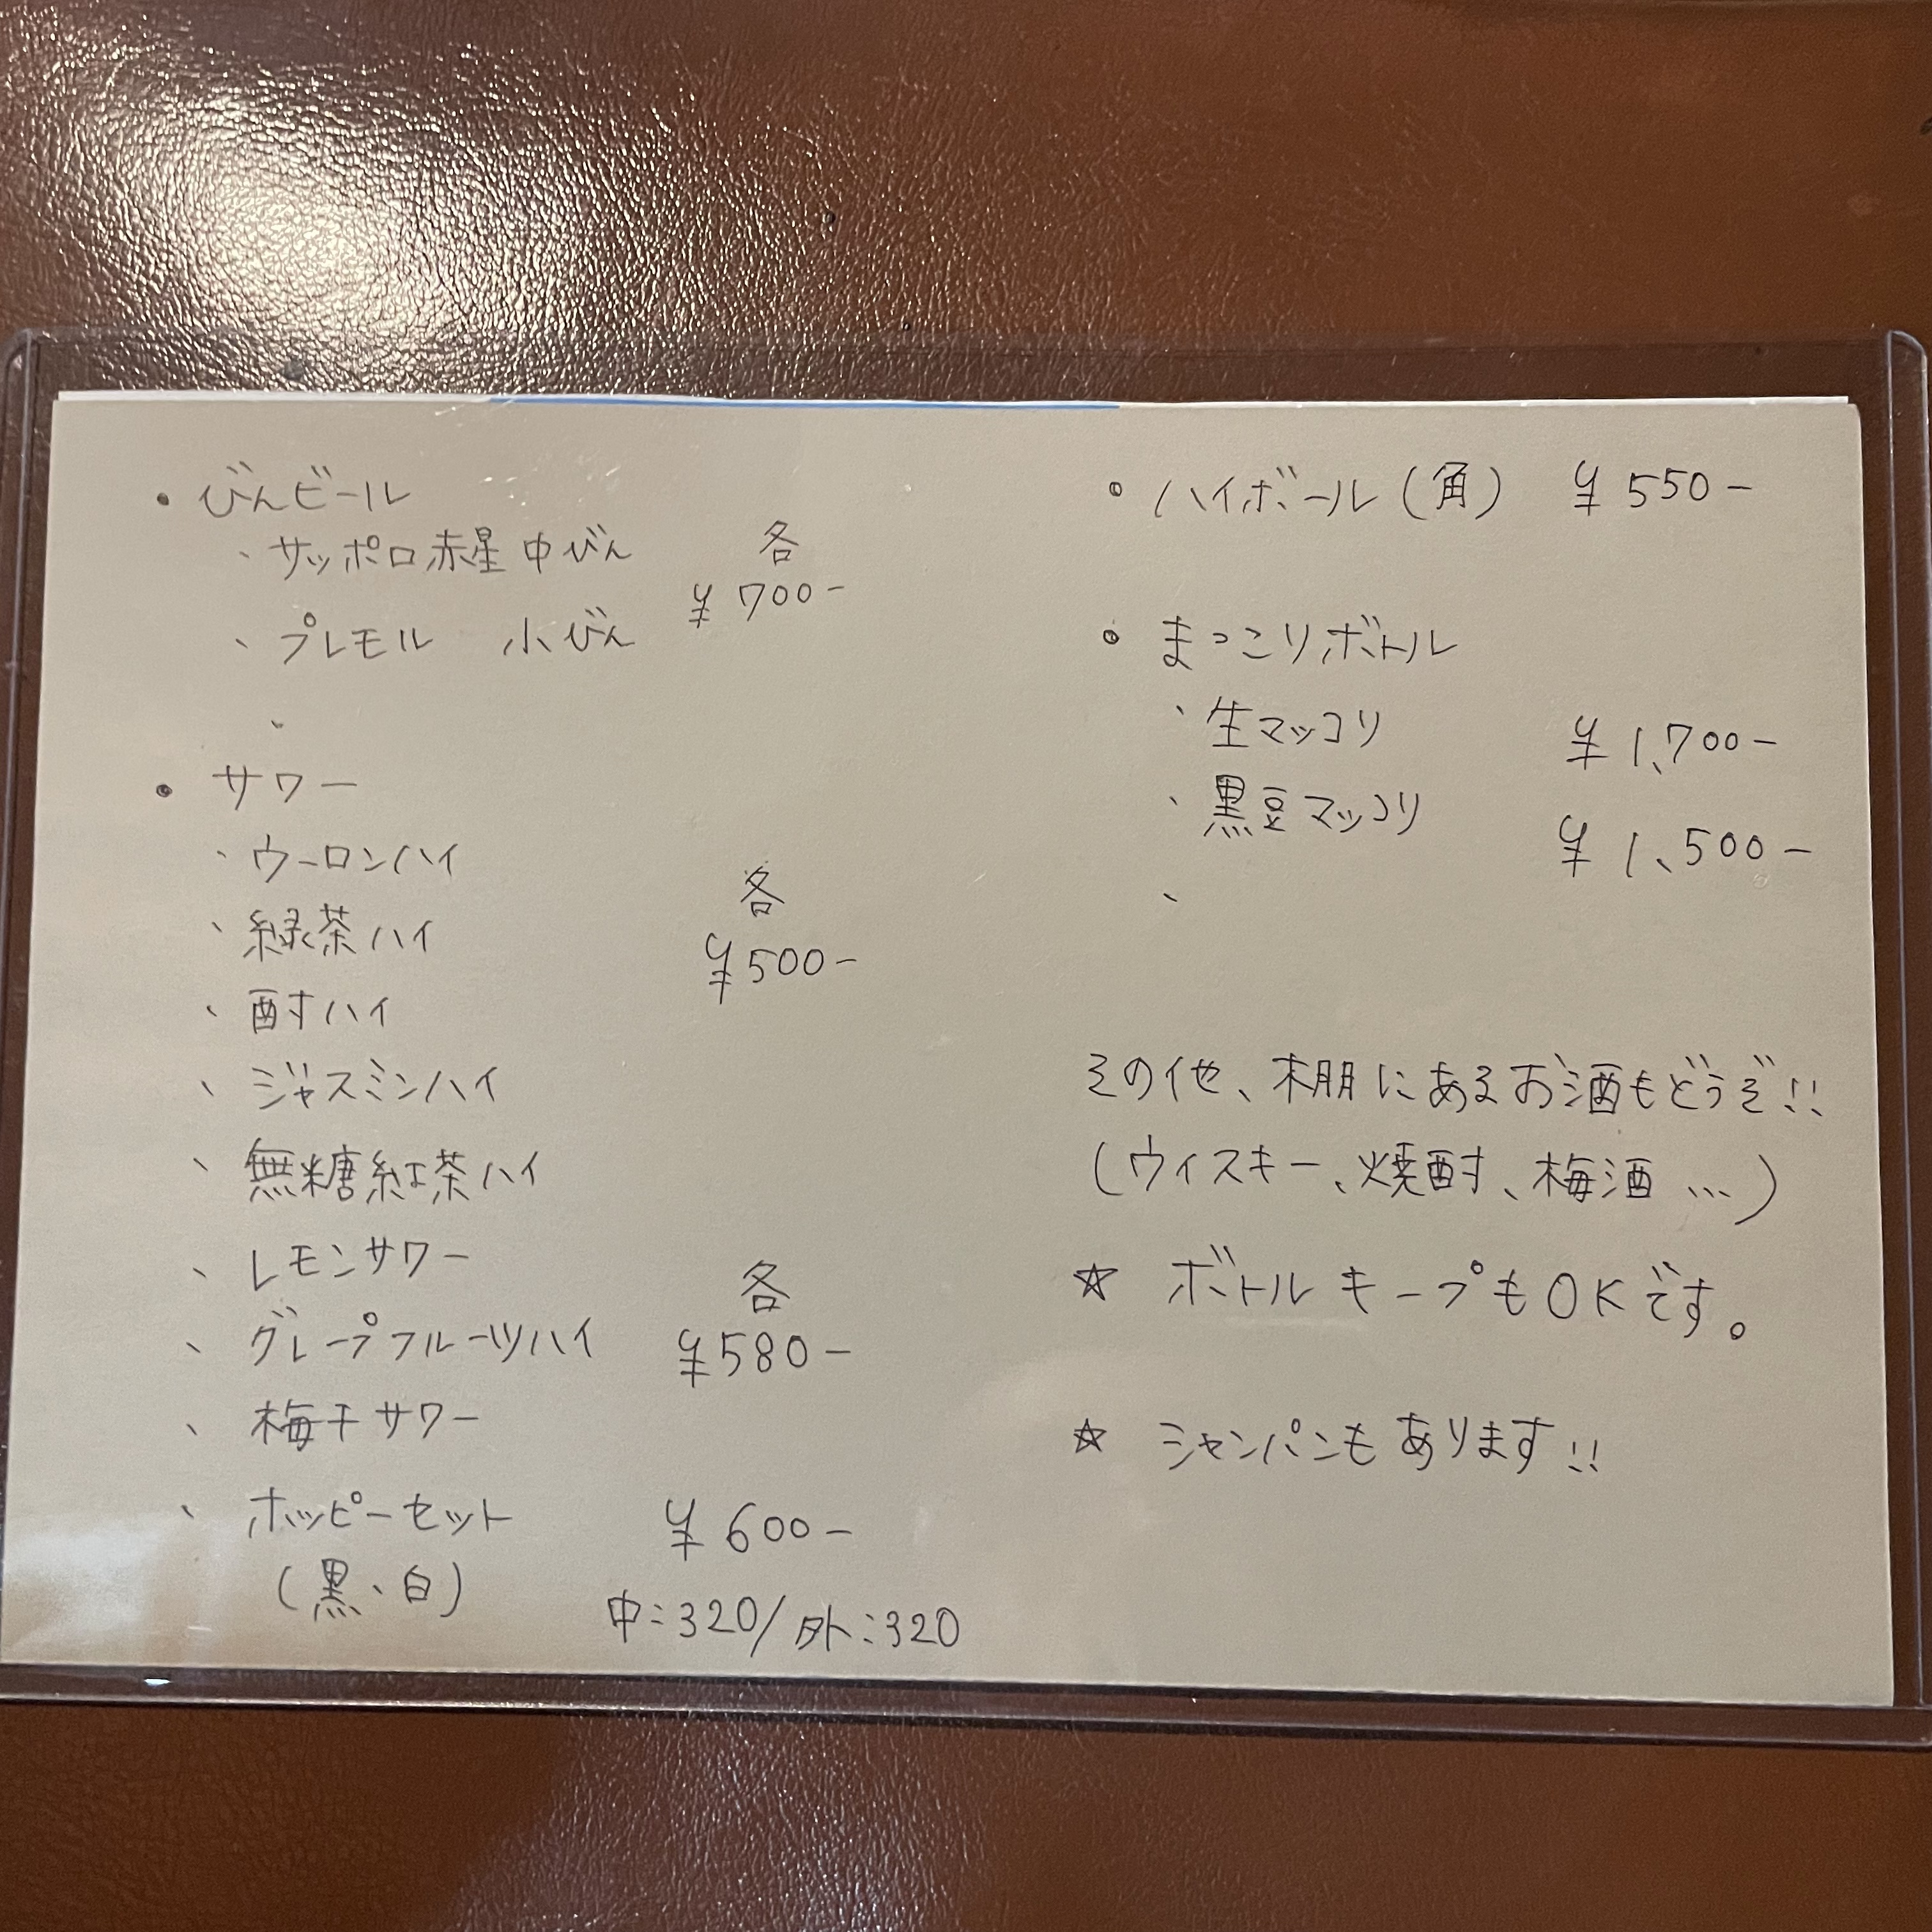 ・びんビール
、サッポロ赤星 中びん
各
¥700-
、プレモル 小びん
、
・サワー
、ウーロンハイ
、緑茶ハイ
各
¥500-
、酎ハイ
、ジャスミンハイ
、無糖紅茶ハイ
、レモンサワー
各
、グレープフルーツハイ
¥580-
、梅干サワー
、ホッピーセット ¥600-
(黒、白)
中:320/外:320
・ハイボール(角) ¥550-
・まっこりボトル
、生マッコリ ¥1,700-
、黒豆マッコリ ¥1,500-
、
その他、棚にあるお酒もどうぞ!!
(ウィスキー、焼酎、梅酒…)
☆ ボトルキープもOKです。
☆ シャンパンもあります!!